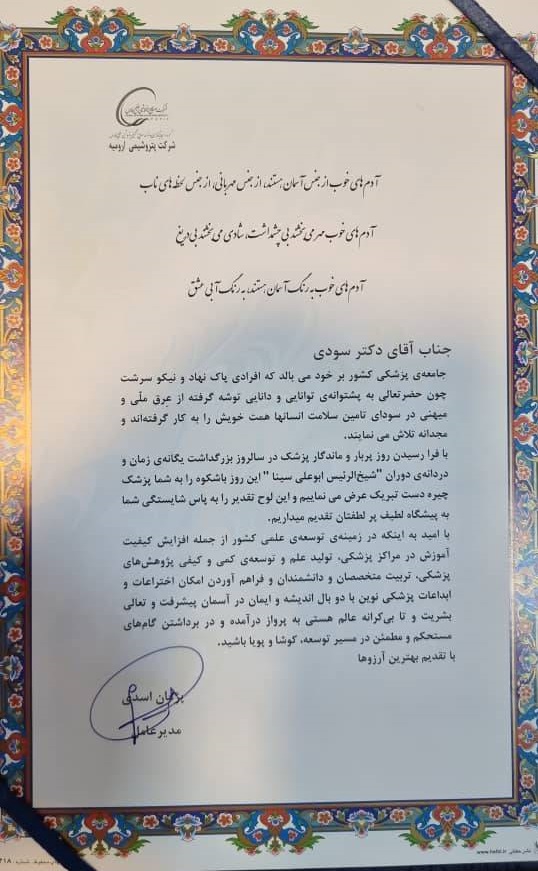 شرکت پتروشیمی ارومیه
آدم های خوب از جنس آسمان هستند، از جنس مهربانی، از جنس لحظه های ناب
آدم های خوب مهر می بخشند بی چشمداشت، شادی می بخشند بی دریغ
آدم های خوب به رنگ آسمان هستند، به رنگ آبی عشق
جناب آقای دکتر سودی
جامعه‌ی پزشکی کشور بر خود می بالد که افرادی پاک نهاد و نیکو سرشت
چون حضرتعالی به پشتوانه‌ی توانایی و دانایی توشه گرفته از عرق ملّی و
میهنی در سودای تامین سلامت انسانها همت خویش را به کار گرفته‌اند و
مجدانه تلاش می نمایند.
با فرا رسیدن روز پربار و ماندگار پزشک در سالروز بزرگداشت یگانه‌ی زمان و
دردانه‌ی دوران "شیخ‌الرئیس ابوعلی سینا " این روز باشکوه را به شما پزشک
چیره دست تبریک عرض می نماییم و این لوح تقدیر را به پاس شایستگی شما
به پیشگاه لطیف پر لطفتان تقدیم میداریم.
با امید به اینکه در زمینه‌ی توسعه‌ی علمی کشور از جمله افزایش کیفیت
آموزش در مراکز پزشکی، تولید علم و توسعه‌ی کمی و کیفی پژوهش‌های
پزشکی، تربیت متخصصان و دانشمندان و فراهم آوردن امکان اختراعات و
ابداعات پزشکی نوین با دو بال اندیشه و ایمان در آسمان پیشرفت و تعالی
بشریت و تا بی‌کرانه عالم هستی به پرواز درآمده و در برداشتن گام‌های
مستحکم و مطمئن در مسیر توسعه، کوشا و پویا باشید.
با تقدیم بهترین آرزوها
اسدی
مدیرعامل